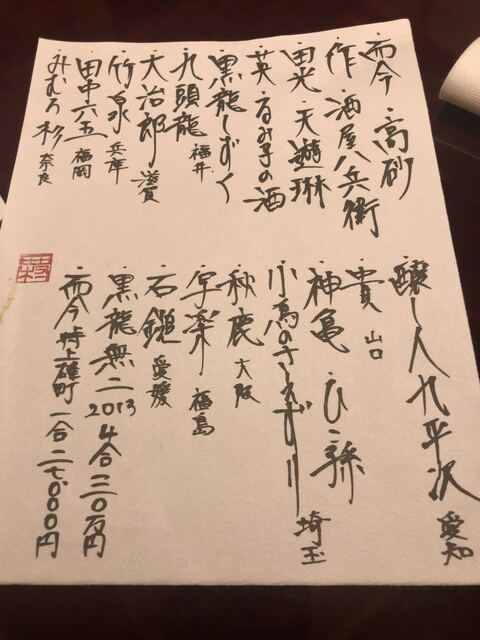 ・而今・高砂
・作・酒屋八兵衛
・田光・天遊琳
・英・るみ子の酒
・黒龍しずく
・九頭龍 福井
・大治郎 滋賀
・竹泉 兵庫
・田中六五 福岡
・みむろ杉 奈良
・醸し人九平次 愛知
・貴 山口
・神亀 ひこ孫
小鳥のさえずり 埼玉
・秋鹿 大阪
・写楽 福島
・石鎚 愛媛
・黒龍無二2013 4合三〇万円
・而今 特上雄町 一合 二七、〇〇〇円